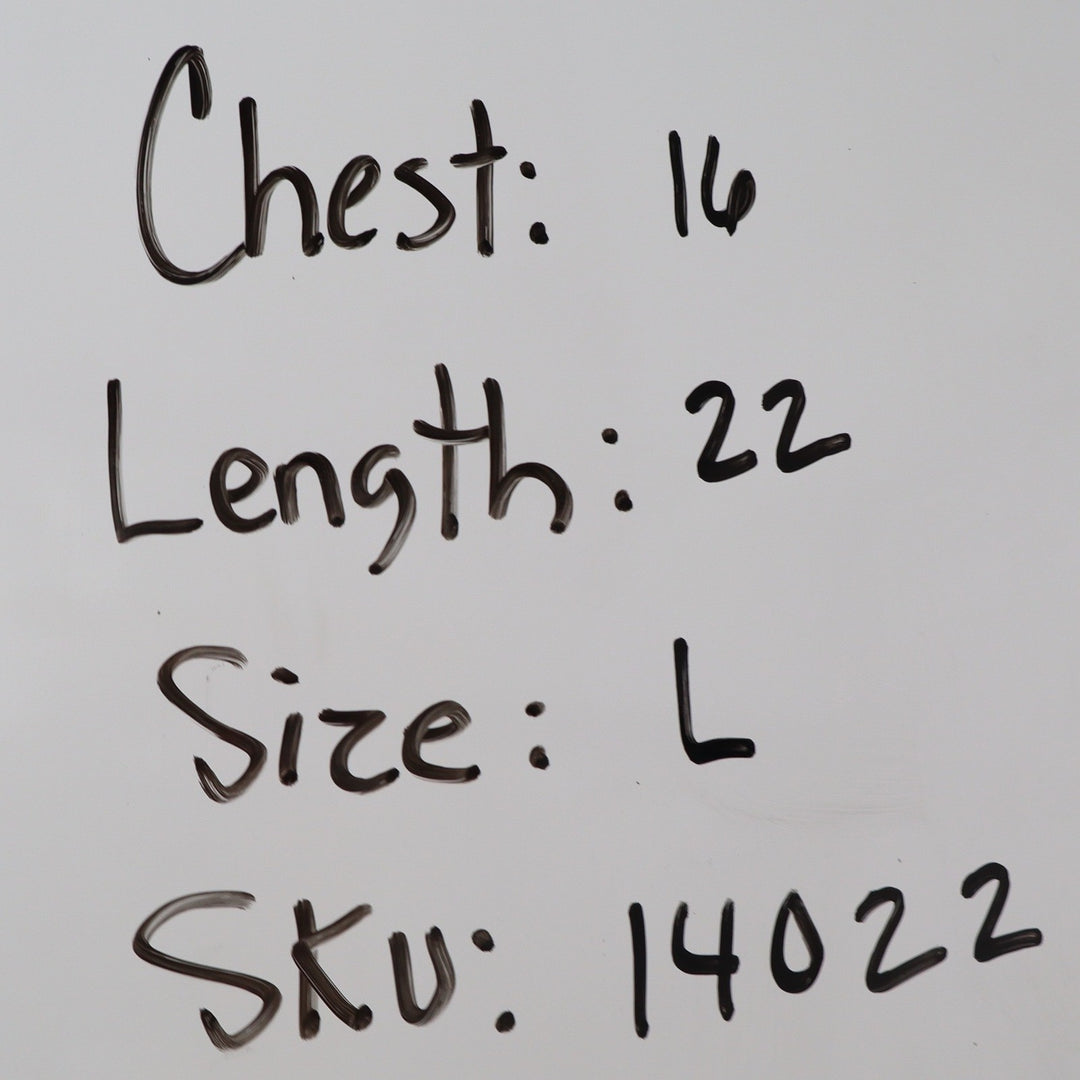 Chest: 16
Length: 22
Size: L
SKU: 14022